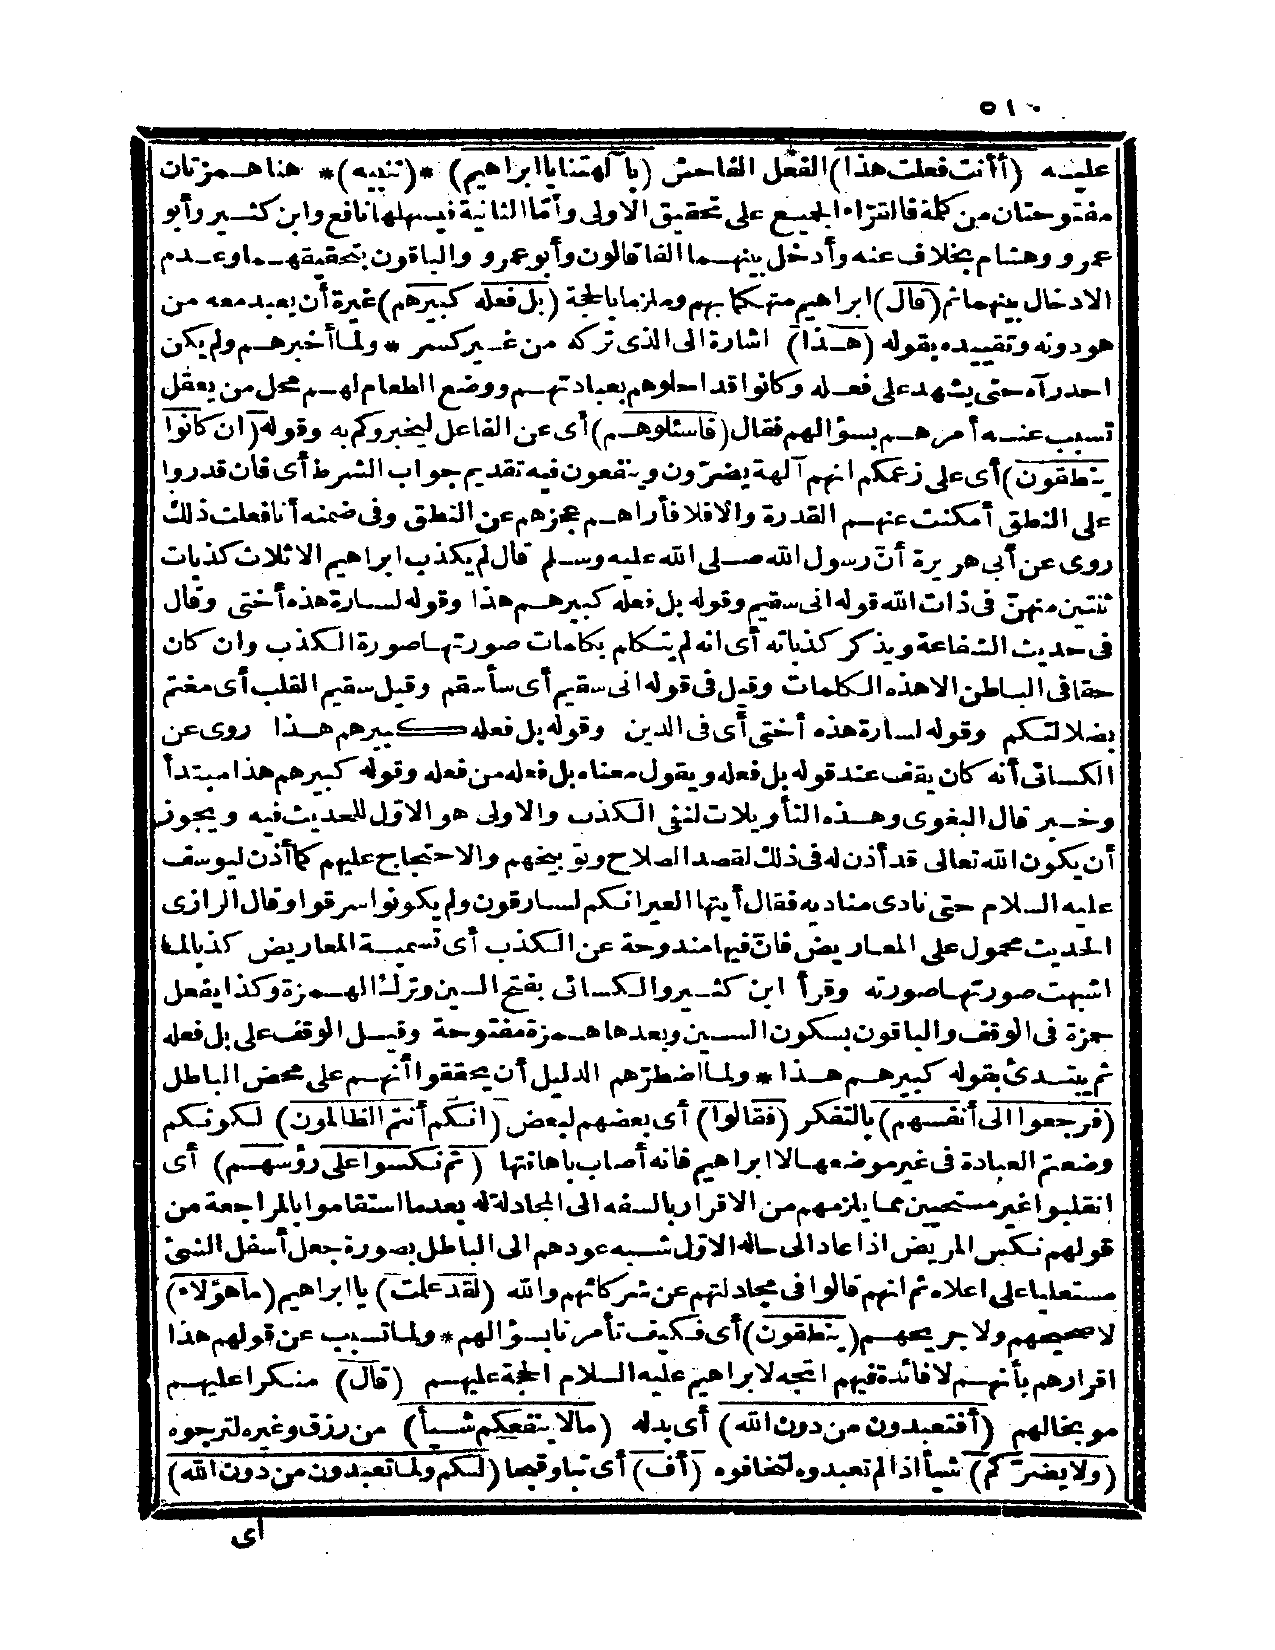 ٥١٠
عليه (أأنت فعلت هذا) الفعل الفاحش (بآلهتنا يا ابراهيم) *(تنبيه)* هنا همزتان
مفتوحتان من كلة فالقراء الجميع على تحقيق الاولى وأما الثانية فيسهلها نافع وابن كثير وأبو
عمرو وهشام بخلاف عنه وأدخل بينهما الفا قالون وأبو عمرو والباقون بتحقيقهما وعدم
الادخال بينهما ثم (قال) ابراهيم متهكما بهم وملزما بالحجة (بل فعله كبيرهم) غيرة أن يعبد معه من
هو دونه وتقييده بقوله (هذا) اشارة الى الذى تركه من غير كسر * ولما أخبرهم ولم يكن
احد رآه حتى يشهد على فعله وكانوا قد احلوهم بعبادتهم ووضع الطعام لهم محل من يعقل
تسبب عنه أمرهم بسؤالهم فقال (فاسئلوهم) أى عن الفاعل ليخبروكم به وقوله (ان كانوا
ينطقون) أى على زعمكم انهم آلهة يضرّون وينفعون فيه تقديم جواب الشرط أى فان قدروا
على النطق أمكنت عنهم القدرة والا فلا فأراهم عجزهم عن النطق وفى ضمنه أنا فعلت ذلك
روى عن أبى هريرة أنّ رسول الله صلى الله عليه وسلم قال لم يكذب ابراهيم الا ثلاث كذبات
ثنتين منهنّ فى ذات الله قوله انى سقيم وقوله بل فعله كبيرهم هذا وقوله لسارة هذه أختى وقال
فى حديث الشفاعة ويذكر كذباته أى انه لم يتكلم بكلمات صورتها صورة الكذب وان كان
حقا فى الباطن الا هذه الكلمات وقيل فى قوله انى سقيم أى سأسقم وقيل سقيم القلب أى مغتم
بضلالتكم وقوله لسارة هذه أختى أى فى الدين وقوله بل فعله كبيرهم هذا روى عن
الكسائى أنه كان يقف عند قوله بل فعله ويقول معناه بل فعله من فعله وقوله كبيرهم هذا مبتدأ
وخبر قال البغوى وهذه التأويلات لنفى الكذب والاولى هو الاوّل للحديث فيه ويجوز
أن يكون الله تعالى قد أذن له فى ذلك لقصد الصلاح وتوبيخهم والاحتجاج عليهم كما أذن ليوسف
عليه السلام حتى نادى مناديه فقال أيتها العير انكم لسارقون ولم يكونوا سرقوا وقال الرازى
الحديث محمول على المعاريض فانّ فيها مندوحة عن الكذب أى تسمية المعاريض كذبا لما
اشبهت صورتها صورته وقرأ ابن كثير والكسائى بفتح السين وترك الهمزة وكذا يفعل
حمزة فى الوقف والباقون بسكون السين وبعدها همزة مفتوحة وقيل الوقف على بل فعله
ثم يبتدئ بقوله كبيرهم هذا * ولما اضطرّهم الدليل أن يحققوا أنهم على محض الباطل
(فرجعوا الى أنفسهم) بالتفكر (فقالوا) أى بعضهم لبعض (انكم أنتم الظالمون) لكونكم
وضعتم العبادة فى غير موضعها لا ابراهيم فانه أصاب باهانتها (ثم نكسوا على رؤسهم) أى
انقلبوا غير مستحيين مما يلزمهم من الاقرار بالسفه الى المجادلة له بعدما استقاموا بالمراجعة من
قولهم نكس المريض اذا عاد الى حاله الاوّل شبه عودهم الى الباطل بصورة جعل أسفل الشئ
مستعليا على اعلاه ثم انهم قالوا فى مجادلتهم عن شركائهم والله (لقد علمت) يا ابراهيم (ما هؤلاء)
لا صحيحهم ولا جريحهم (ينطقون) أى فكيف تأمرنا بسؤالهم * ولما تسبب عن قولهم هذا
اقرارهم بأنهم لا فائدة فيهم اتجه لابراهيم عليه السلام الحجة عليهم (قال) منكرا عليهم
موبخا لهم (أفتعبدون من دون الله) أى بدله (ما لا ينفعكم شيأ) من رزق وغيره لترجوه
(ولا يضرّكم) شيأ اذا لم تعبدوه لتخافوه (أف) أى تبا وقبحا (لكم ولما تعبدون من دون الله)
أى